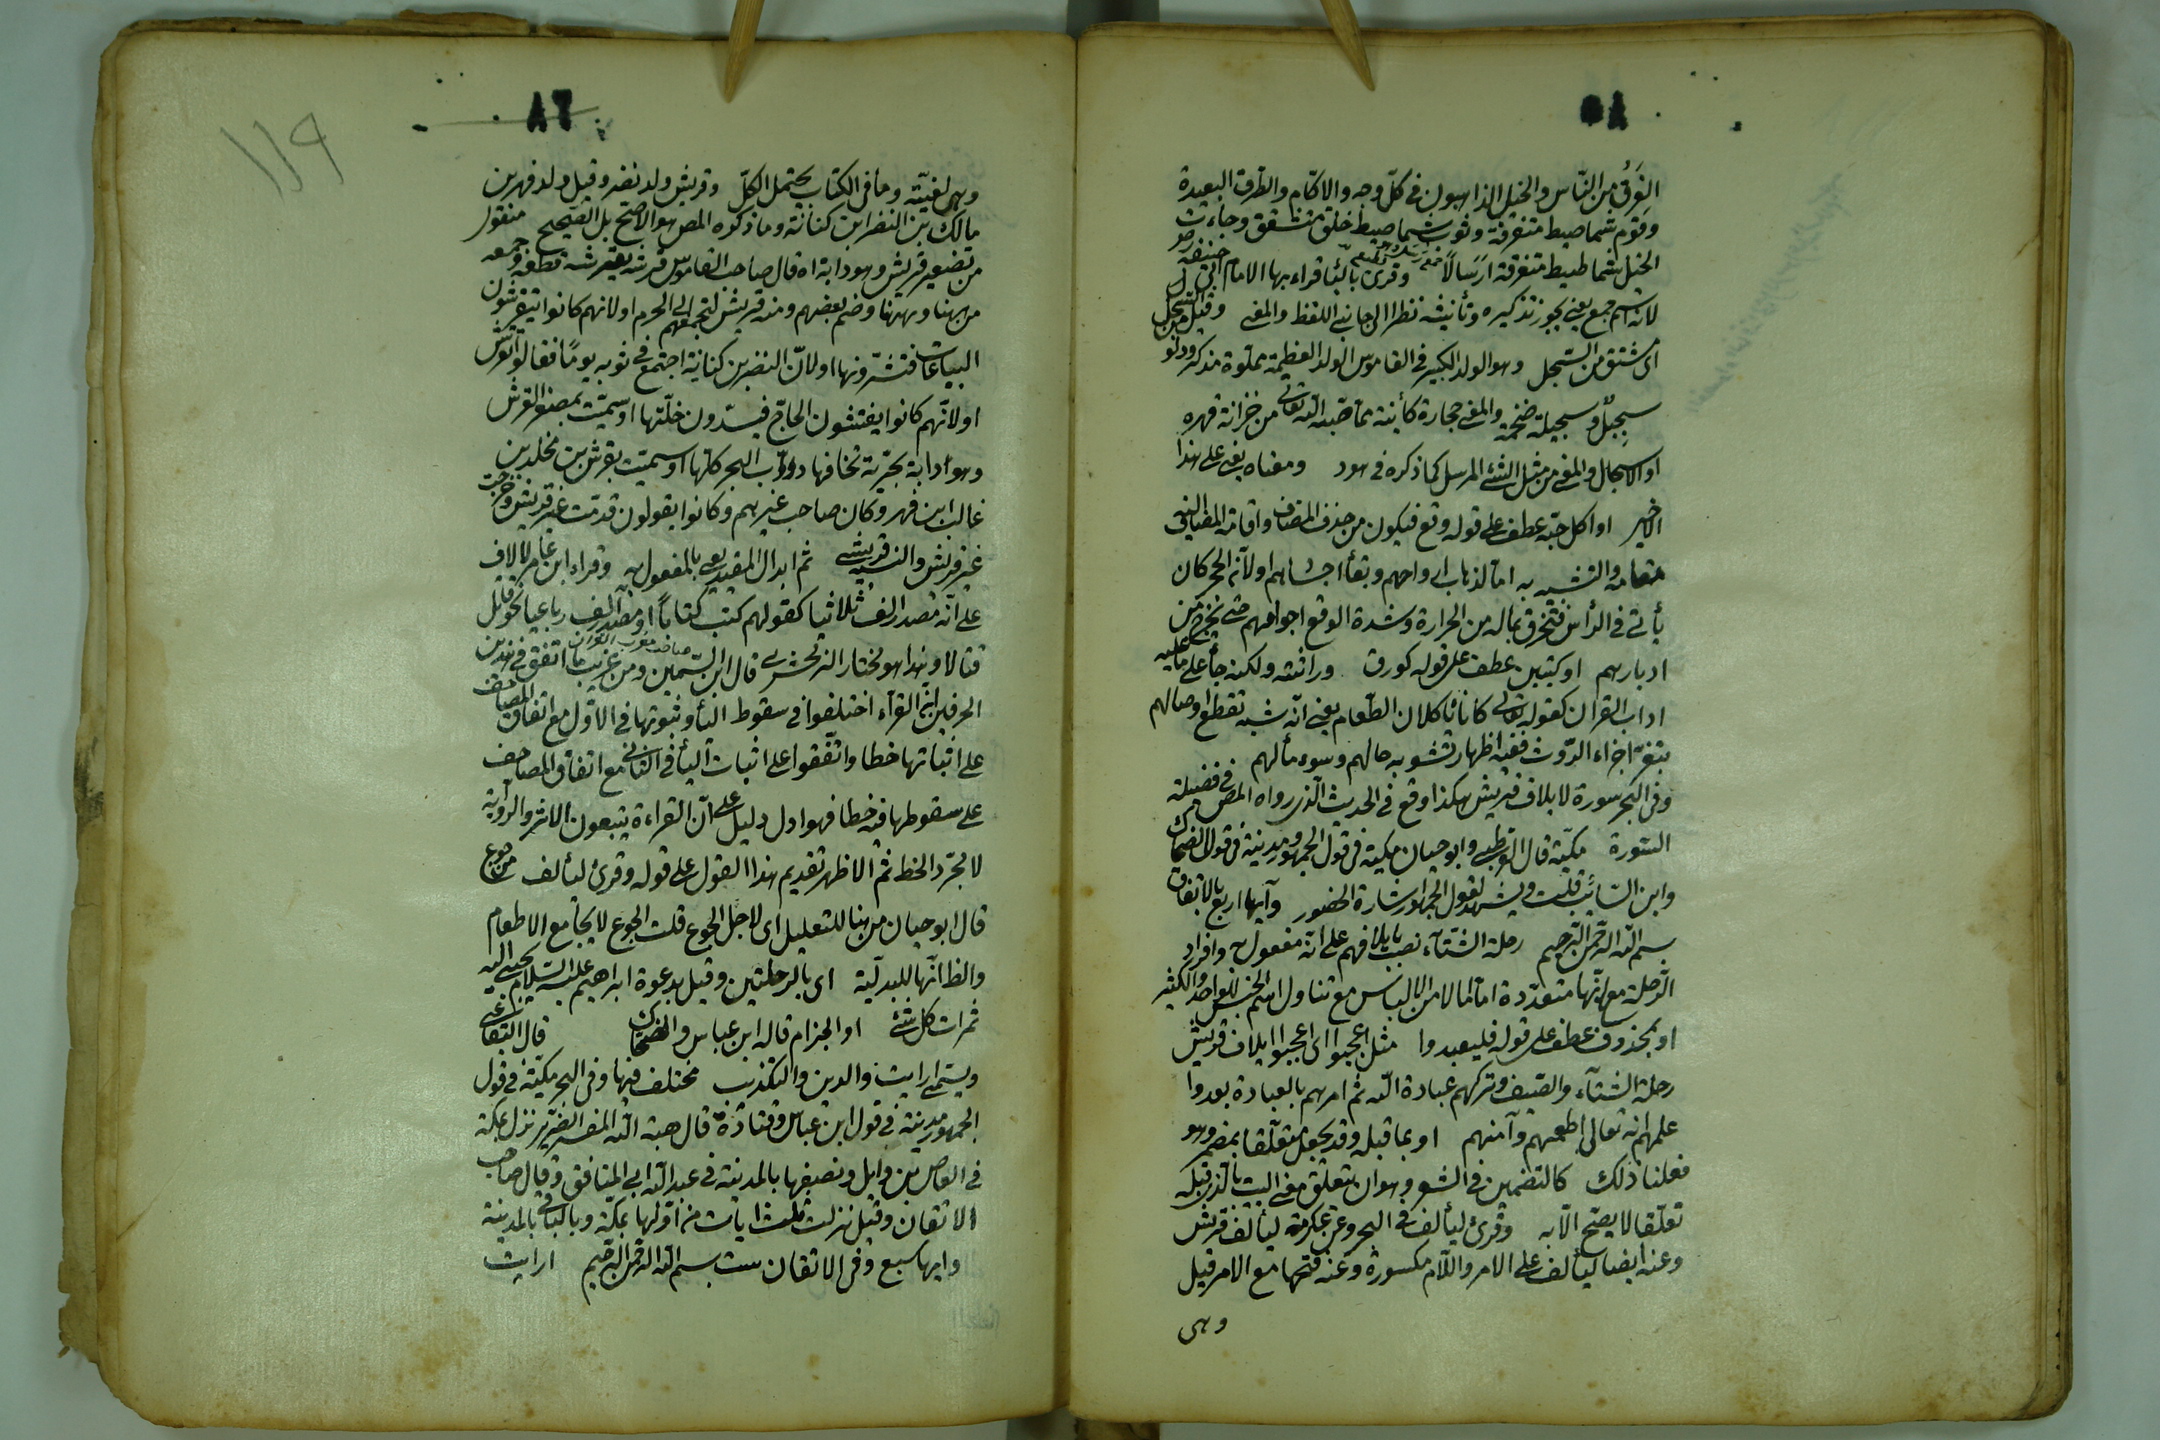 ٨٥
الفرق من الناس والخيل الذاهبون في كل وجه والاكام والطرق البعيدة
وقوم شماطيط متفرقة وثوب شماطيط خلق متشقق وجاءت
الخيل شماطيط متفرقة ارسالا وقرئ بالياء قراء بها الامام ابي حنيفة رحمه
لانه اسم جمع يعني يجوز تذكيره وتأنيثه نظرا الى جانبي اللفظ والمعنى وقيل من السجل
اى مشتق من السجل وهو الدلو الكبير في القاموس الدلو العظيمة مملوة مذكر ودلو
سجيل وسجيلة ضخمة والمعنى حجارة كائنة مما صبه الله تعالى من خزانة قهره
او الاسجال والمعنى من مثل الشئ المرسل كما ذكره في هود ومعناه يعني على هذا
الاخير او اكل حبه عطف على قوله وقع فيكون من حذف المضاف واقامة المضاف اليه
مقامه والتشبيه به اما لذهاب ارواحهم وبقاء اجسادهم او لان الحجر كان
يأتي في الرأس فتخرق بماله من الحرارة وشدة الوقع اجوافهم حتى يخرج من
ادبارهم او كتبن عطف على قوله كورق وراثته ولكنه جاء على ما عليه
اداب القران كقوله تعالى كانا يأكلان الطعام يعني انه شبه تقطع اوصالهم
بتفرق اجزاء الروث ففيه اظهار تشويه حالهم وسوء مآلهم
وفي البحر سورة لايلاف قريش هكذا وقع في الحديث الذي رواه المص في فضيلة
السورة مكية قال القرطبي وابو حيان مكية في قول الجمهور ومدنية في قول الضحاك
وابن السائب قلت ويشهد لقول الجمهور اشارة الحضور وآيها اربع بالاتفاق
بسم الله الرحمن الرحيم رحلة الشتاء نصب بايلافهم على انه مفعول به وافراد
الرحلة مع انها متعددة اما لما لامن الالباس مع تناول اسم الجنس للواحد والكثير
او بمحذوف عطف على قوله فليعبدوا مثل اعجبوا اى اعجبوا ايلاف قريش
رحلة الشتاء والصيف وتركهم عبادة الله ثم امرهم بالعبادة بعد وا
علمهم انه تعالى اطعمهم وآمنهم او بما قبله وقد يجعل متعلقا بمضمر وهو
فعلنا ذلك كالتضمين في الشعر وهو ان يتعلق معنى البيت بالذي قبله
تعلقا لا يصح الا به وقرئ ليألف في البحر وعن عكرمة ليألف قريش
وعنه ايضا ليألف على الامر واللام مكسورة وعنه فتحها مع الامر قيل
وهي
٨٦
١١٩
وهي لغية وما في الكتاب يحتمل الكل وقريش ولد نضر وقيل ولد فهر بن
مالك بن النضر ابن كنانة وما ذكره المص هو الاصح بل الصحيح منقول
من تصغير قرش وهو دابة اه قال صاحب القاموس قرشه يقرشه قطعه وجمعه
من ههنا وههنا وضم بعضهم ومنه قريش لتجمعهم الى الحرم او لانهم كانوا يتقرشون
البياعات فتشترونها او لان النضر بن كنانة اجتمع في ثوبه يوما فقالوا تقرش
او لانهم كانوا يفتشون الحاج فيسدون خلتها او سميت بمصغر القرش
وهو دابة بحرية تخافها دواب البحر كلها او سميت بقرش بن مخلد بن
غالب ابن فهر وكان صاحب عيرهم وكانوا يقولون قدمت عير قريش وخرجت
عير قريش والنسبة قرشي ثم ابدال المقيد يعني بالمفعول به وقراء ابن عامر لالاف
على انه مصدر الف ثلاثيا كقولهم كتب كتابا او مصدر آلف رباعيا نحو قاتل
قتالا وهذا هو مختار الزمخشري قال ابن السمين صاحب معرب القران ومن غريب ما اتفق في هذين
الحرفين ان القراء اختلفوا في سقوط الياء وثبوتها في الاول مع اتفاق المصاحف
على اثباتها خطا واتفقوا على اثبات الياء في الثاني مع اتفاق المصاحف
على سقوطها فيه خطا فهو ادل دليل على ان القراءة يتبعون الاثر والرواية
لا مجرد الخط ثم الاظهر تقديم هذا القول على قوله وقرئ ليألف من جوع
قال ابو حيان من هنا للتعليل اى لاجل الجوع قلت الجوع لا يجامع الاطعام
والظ انها للبدلية اى بالرحلتين وقيل بدعوة ابراهيم عليه السلام يجبى اليه
ثمرات كل شئ او الجذام قاله ابن عباس والضحاك قال البقاعي
ويسمى ارايت والدين والتكذيب مختلف فيها وفي البحر مكية في قول
الجمهور مدنية في قول ابن عباس وقتادة قال هبة الله المفسر الضرير نزل بمكة
في العاص بن وايل ونصفها بالمدينة في عبد الله ابي المنافق وقال صاحب
الاتقان وقيل نزلت ثلث ايات من اولها بمكة وباقيها بالمدينة
وايها سبع وفي الاتقان ست بسم الله الرحمن الرحيم ارايت